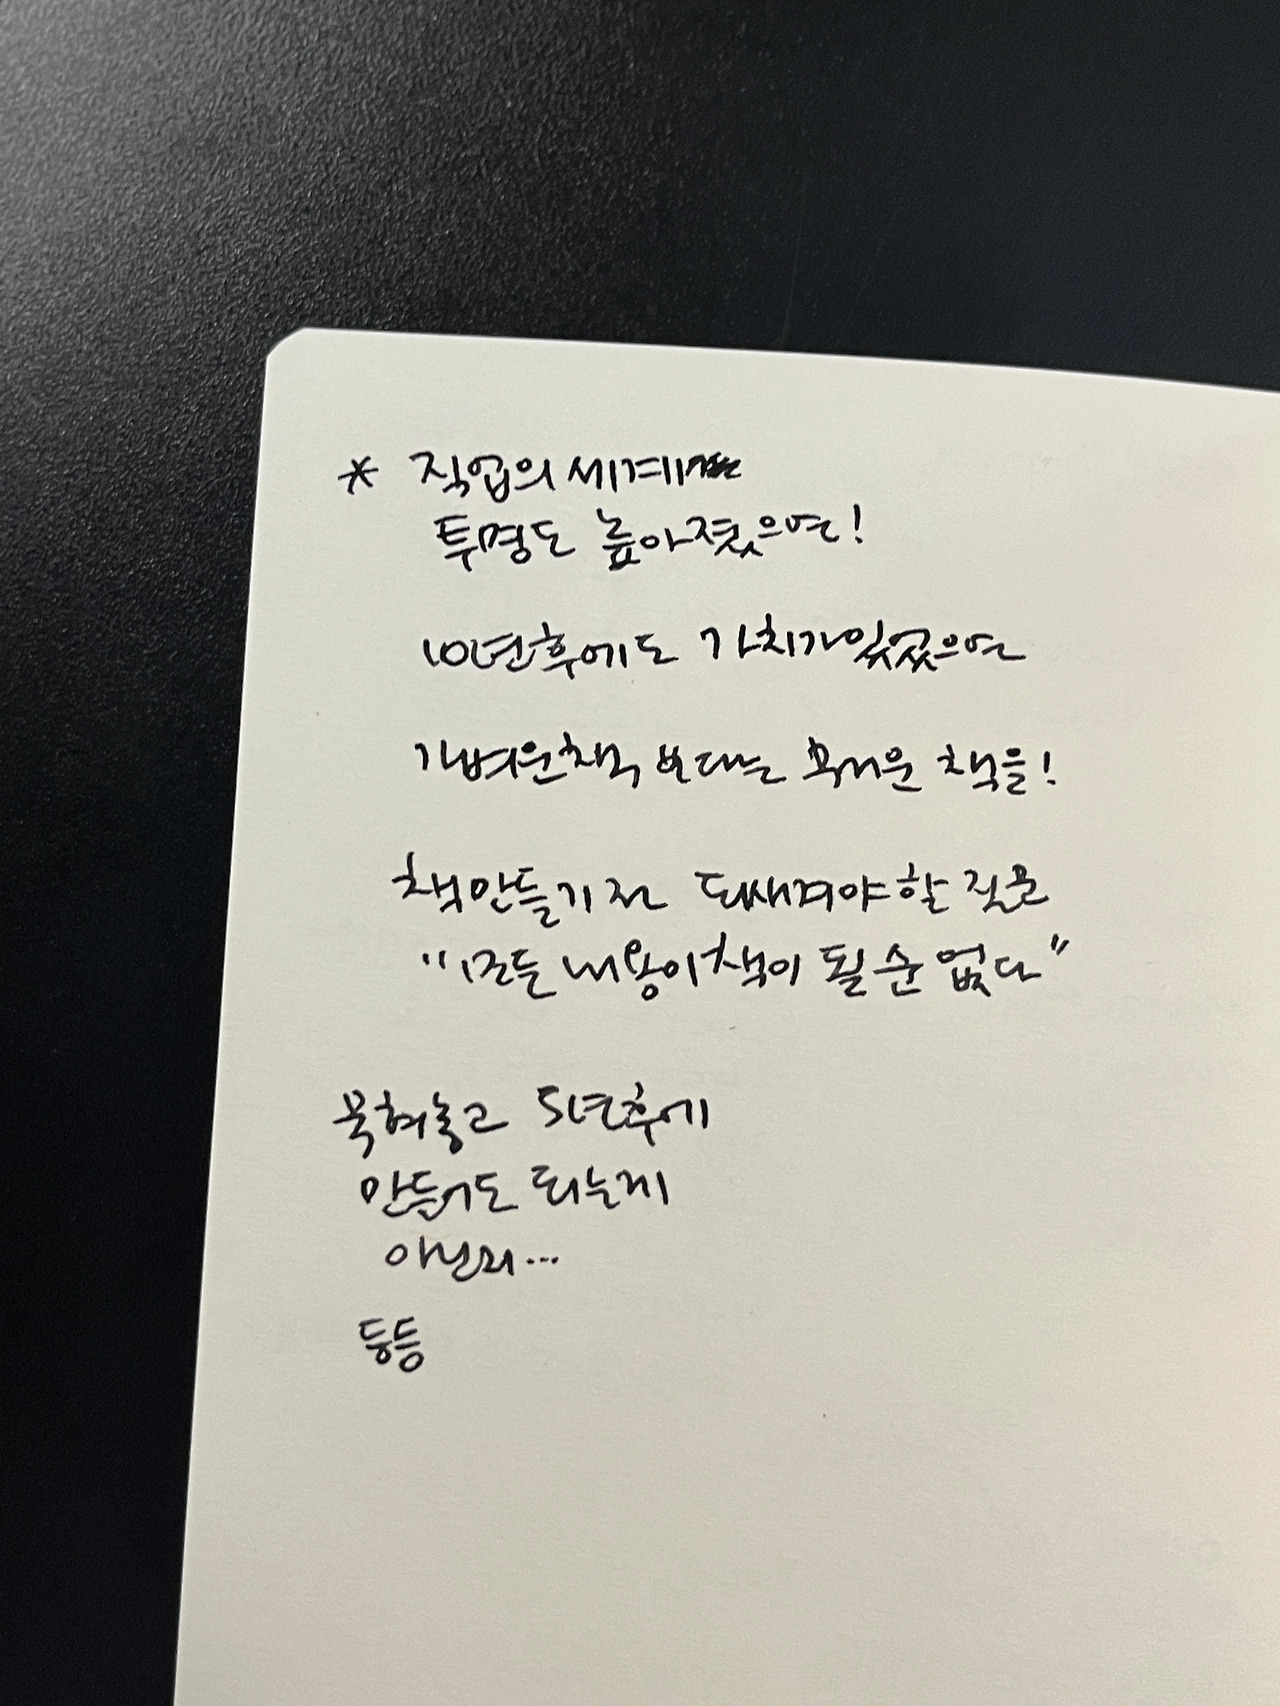 * 직업의 세계
투명도 높아졌으면!
10년후에도 가치가있었으면
가벼운책 보다는 무거운 책을!
책만들기 전 되새겨야 할 질문
"모든 내용이 책이 될 순 없다"
묵혀놓고 5년후에
만들어도 되는게
아닌지...
등등